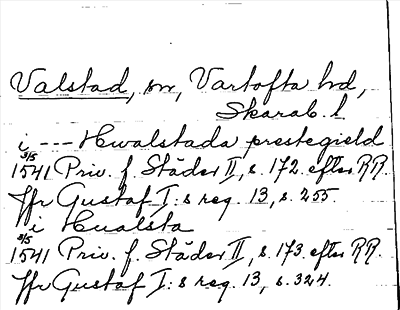 Valstad, sn, Vartofta hd,
Skarab. l.
i --- Hwalstada prestegield
3/5 1541 Priv. f. Städer II, s. 172. efter RR.
Jfr Gustaf I:s reg. 13, s. 255.
i Hualsta
3/5 1541 Priv. f. Städer II, s. 173. efter RR.
Jfr Gustaf I:s reg. 13, s. 324.